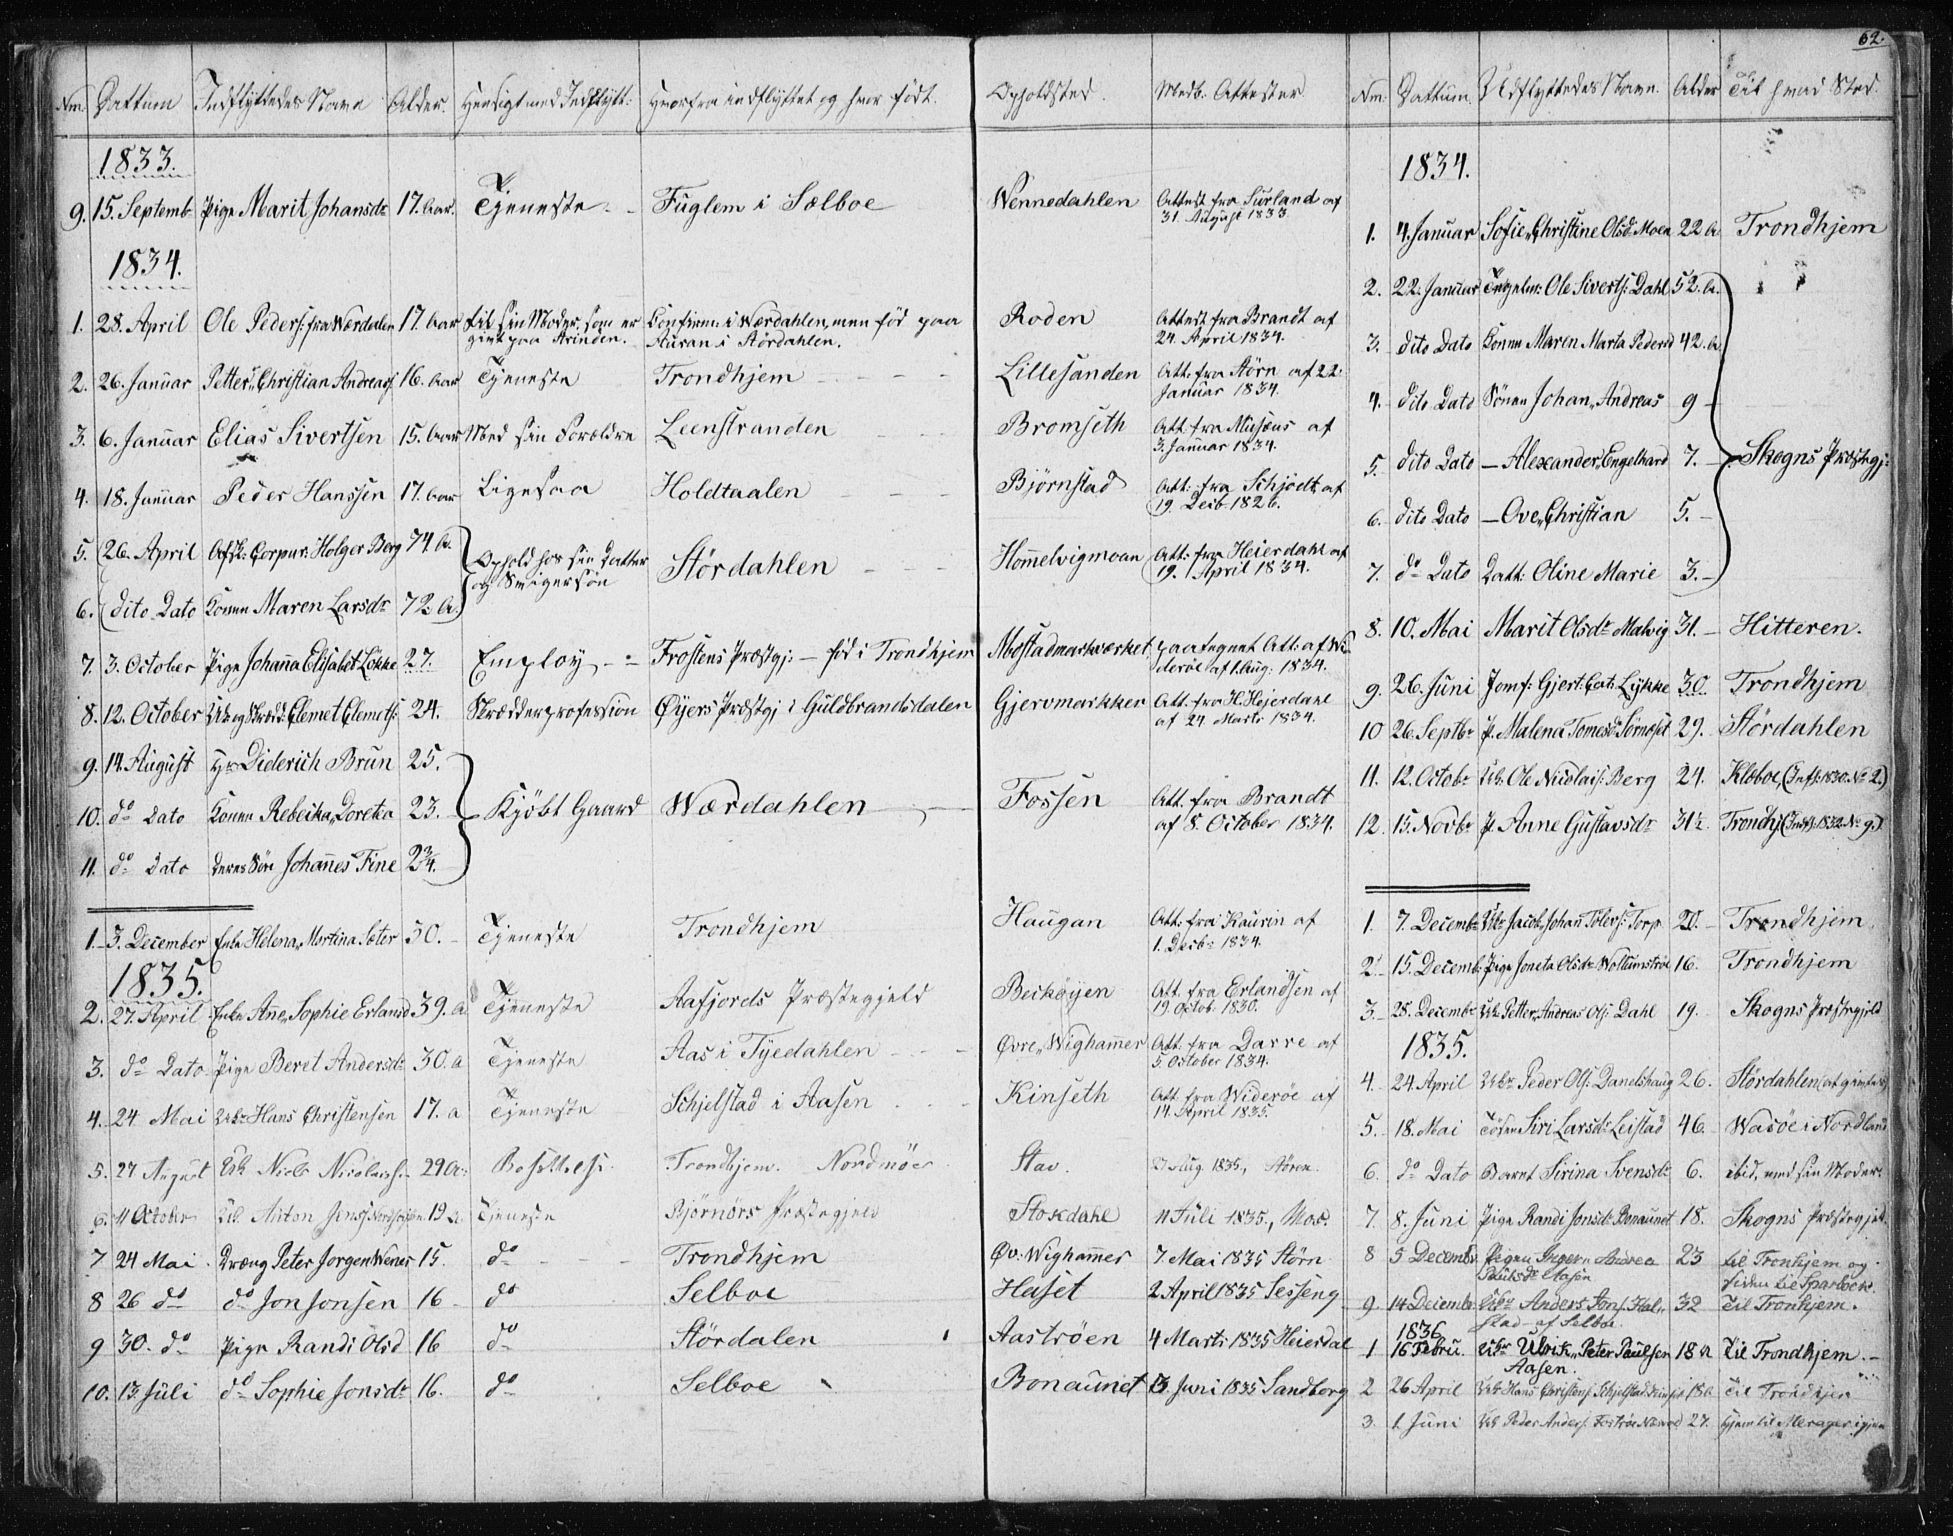 62.
Nm. Dattum Indflyttedes Navn Alder. Hensigt med Indflytt: Hvorfra indflyttet og hvor født. Opholdsted. Medb. Attester.
1833.
9. 15. Septemb. Pige Marit Johansdr 17. Aar. Tjeneste - - Fuglem i Sælboe Wennedahlen Attest fra Surland af
31. August 1833.
1834.
1. 28. April Ole Peders: fra Wærdalen 17. Aar til sin Moder, som er Confirm: i Wærdahlen, men fød paa Roden Attest fra Brandt af
givt paa Strinden. Auran i Størdahlen. 24. April 1834.
2. 26. Januar Petter Christian Andreas: 16. Aar Tjeneste Trondhjem - - - Lillesanden Att: fra Störn af 22.
Januar 1834.
3. 6. Januar Elias Sivertsen 15. Aar Med sin Forældre Leenstranden - - - Bromseth Att. fra Musæus af
3. Januar 1834.
4. 18. Januar Peder Hanssen 17. Aar Ligesaa Holdtaalen - - - Bjørnstad Att: fra Schjødt af
19. Decb. 1826.
5. 26. April Afsk: Corpur: Holger Berg 74 A. Ophold hos sin Datter Størdahlen - - - Hommelvigmoan Att: fra Heierdahl af
og Svigersøn 19. April 1834.
6. Dito Dato Konen Maren Larsdr 72. A.
7. 3. October Pige Johanna Elisabet Løkke 27. Employ - - Frostens Præstgj: - fød i Trondhjem Mostadmarkværket paategnet Att: af Wi-
derøe af 1. Aug: 1834.
8. 12. October Uk og Skræd: Clemet Clemets: 24. Skrædderprofession Øyers Præstgj i Guldbrandsdalen Gjervmarkken Att. fra H. Hejerdahl
af 24 Marts 1834.
9. 14. August Hr Diderich Brun 25.
10. do Dato Konen Rebeika Doreka 23. Kjöbt Gaard Wærdahlen Fossen Att. fra Brandt
af 8. October 1834.
11. do Dato Deres Søn Johannes Fine 2¾.
1. 3. December Enke Helena Martina Sæter 30. Tjeneste Trondhjem Haugan Att: fra Kaurin af
1. Decbr 1834.
1835.
2. 27. April Enke Ane Sophie Erlansd 39. A Tjeneste Aafjords Præstegjeld Beiköijen Att. fra Erlandsen af
19. Octob. 1830.
3. do Dato Pige Beret Andersdr 30. a Tjeneste Aas i Tyedahlen - - - Øvre Wighammer Att. fra Darre af
5. October 1834.
4. 24 Mai Ukr Hans Christensen 17. a Tjeneste Schjelstad i Aasen - - Kinseth Att. fra Widerøe af
14. April 1835.
5. 27 August Uk Niels Nicolais: 29 A. Bosættelse Trondhjem. Nordmöer Stav. Aug. 1835, Støren
6. 11 October Uk. Anton Jens: 19 A. Tjeneste Bjørnørs Præstegjeld Stoxdahl 11 Juli 1835,
7 24 Mai Dræng Peter Jørgen Wener 15. do - - - Trondhjem Øv: Wighammer 7. Mai 1835 Störn
8 26 do do Jon Jonsen 16 - do Selboe Haset 2 April 1835 Sesseng
9 30. do Pige Randi Olsd 16 do Størdalen Aastrøen 4 Marts 1835 Heierdal
10. 13 Juli do Sophie Jonsdr 16. do Selboe Bonaunet 13. Juni 1835 Sandborg
Nm. Dattum. Udflyttedes Navn. Alder Til hvad Sted.
1834.
1. 4. Januar Sofie Christine Olsdr Moen 22 A. Trondhjem
2. 22. Januar Ole Siverts: Dahl 52. A.
3. dito Dato Konen Maren Marta Pedersd 42. A.
4. dito Dato Sønen Johan Andreas 9 -
5. dito Dato - Alexander Engelhard 7. - Skogns Præstegj:
6. dito Dato - Ove Christian 5. -
7. do Dato Datt: Oline Marie 3. -
8. 10. Mai Marit Olsdr Malvig 31. - Hitteren.
9. 26. Juni Jomf: Gjert: Cat: Lykke 30. Trondhjem
10 26. Septbr P. Malena Tomesdr Sørnæset 29. Størdahlen
11. 12. Octobr Uk. Ole Nicolais: Berg 24. Klæboe, (Inf: 1830. No 2.)
12. 15. Novbr P. Anne Gustavsdr 31½. Trondhj. (Indf: 1832. No 9.)
1. 7. Decembr Ukr Jacob Johan Tolers: Torp 20. - Trondhjem.
2. 15. Decemb: Pige Joneta Olsdr Woltumstrøe 16. Trondhjem
3. 28. Decembr Uk Petter Andreas Ols: Dahl 19. Skogns Præstegjeld
1835.
4. 24 April Ukr Peder Ols: Danelshaug 26. Størdahlen
5. 18. Mai Tösen Siri Larsdr Leistad 46. Wasöe i Nordland
6. do Dato Barnet Sirina Svensdr 6. ibid, med sin Moder.
7. 8. Juni Pige Randi Jonsdr Bonaunet 18. Skogns Præstegjeld.
8 5 Decembr Pigen Inger Andrea 23 til Tronhjem og
Paulsdr Aasen siden til Sparboen.
9. 14 Decembr Ukr Anders Jons: Hal- 32 Til Tronhjem.
stad af Selboe.
1836.
1 16 Febru. Ukr Ulrik Peter Paulsen 18 a Til Trondhjem. -
Aasen.
2 26 April Uk Hans Christens: Schjelstad 18 a. Til Trondhjem
3. 1. Juni Uk Peder Anders: 27. hjem til Merager igjen